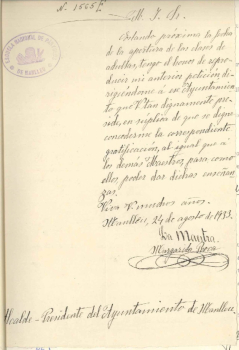 N. 1565 E
M. I. Sr.
Estando próxima la fecha
de la apertura de las clases de
adultas, tengo el honor de repro-
ducir mi anterior petición, di-
rigiéndome á ese Ayuntamien-
to que V. tan dignamente pre-
side, en súplica de que se digne
concederme la correspondiente
gratificación, al igual que á
los demás Maestros, para como
ellos, poder dar dichas enseñan-
zas.
Viva V. muchos años.
Manlleu, 24 de agosto de 1933.
La Maestra,
Margarita Roca
Alcalde-Presidente del Ayuntamiento de Manlleu.